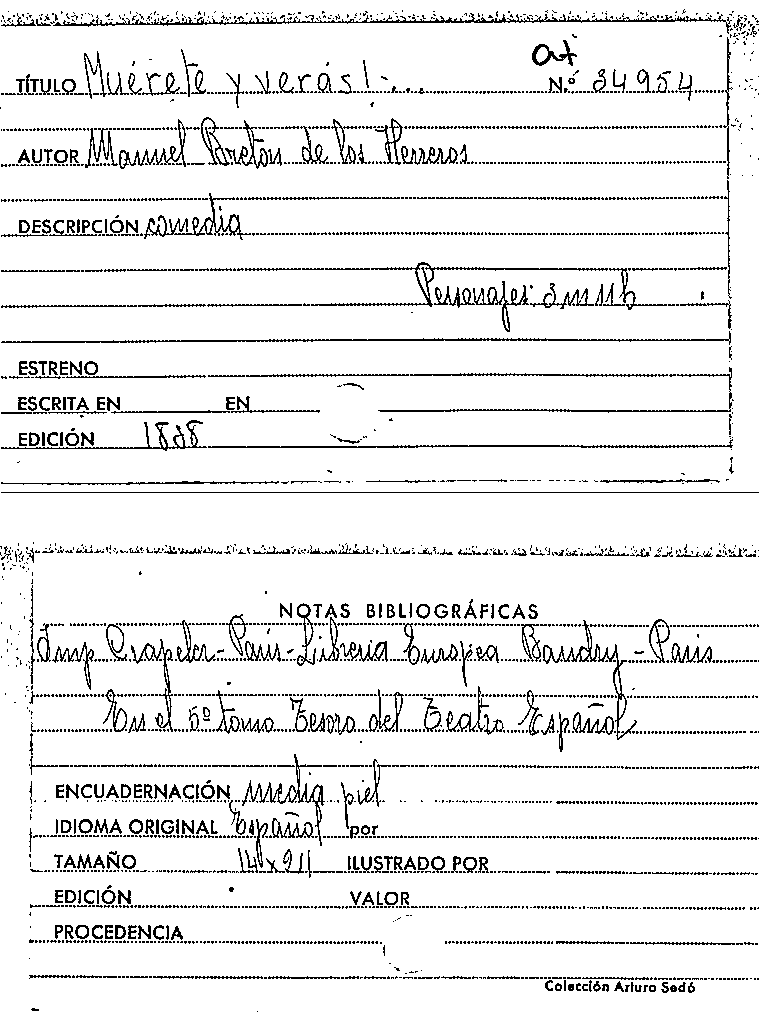 at
TÍTULO Muérete y verás!-...
N.º 34954
AUTOR Manuel Breton de los Herreros
DESCRIPCIÓN comedia
Personajes: 3m 11h
ESTRENO
ESCRITA EN EN
EDICIÓN 1838
NOTAS BIBLIOGRÁFICAS
Imp Crapelet-Paris-Libreria Europea Baudry-Paris
En el 5º tomo Tesoro del Teatro Español
ENCUADERNACIÓN media piel
IDIOMA ORIGINAL Español por
TAMAÑO ILUSTRADO POR
EDICIÓN VALOR
PROCEDENCIA
Colección Arturo Sedó